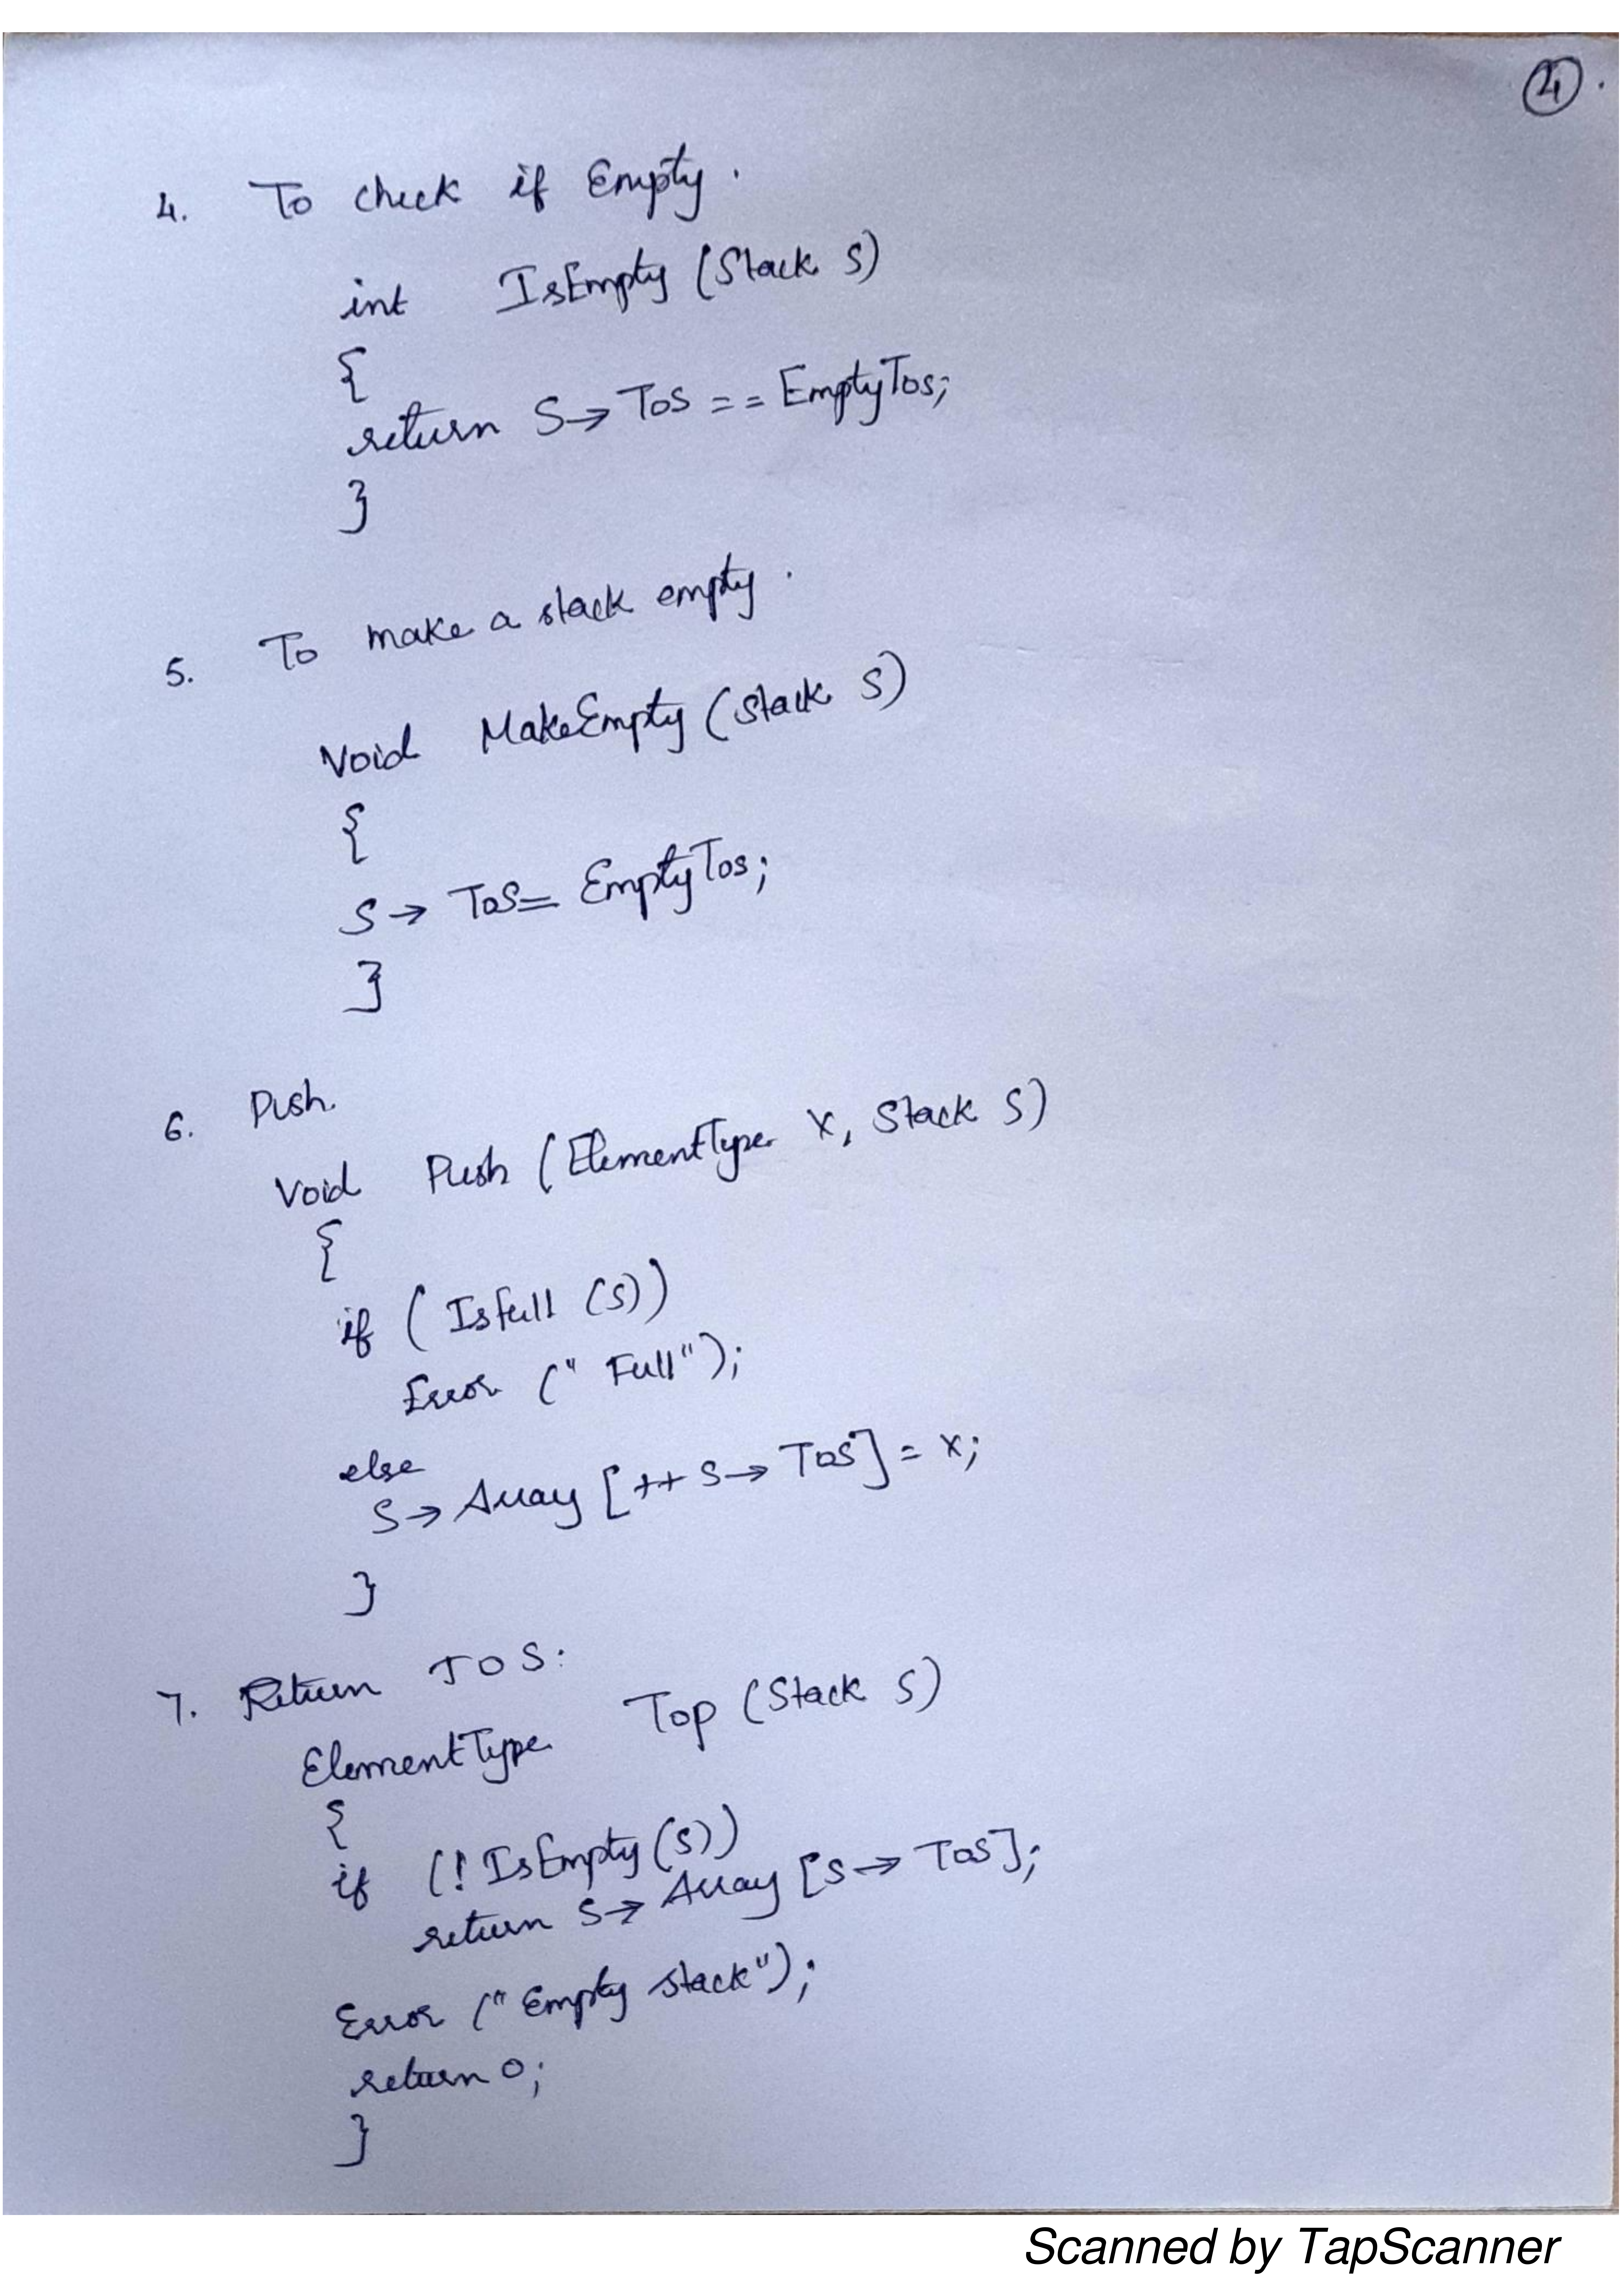 4.
4. To check if Empty.
int IsEmpty (Stack S)
{
return S→ TOS == EmptyTos;
}
5. To make a stack empty.
Void MakeEmpty (Stack S)
{
S→ TOS= EmptyTos;
}
6. Push.
Void Push (ElementType X, Stack S)
{
if ( Isfull (S))
Error (" Full");
else
S→ Array [++ S→ TOS] = X;
}
7. Return TOS:
ElementType Top (Stack S)
{
if (! IsEmpty (S))
return S→ Array [S→ TOS];
Error ("Empty stack");
return 0;
}
Scanned by TapScanner